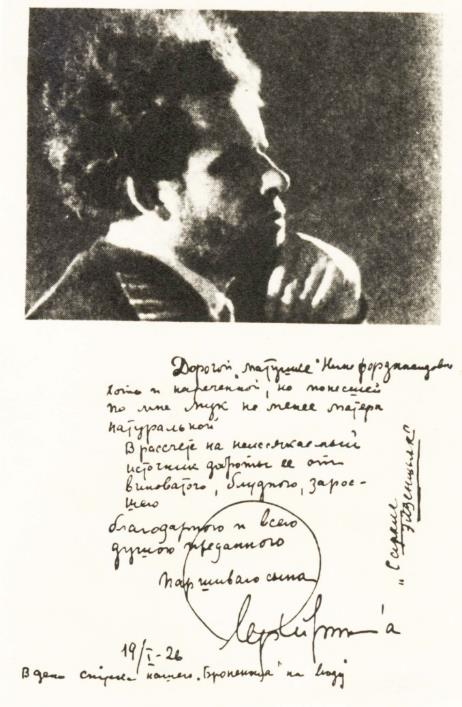 Дорогой "матушке" Нине Фердинандовне
хоть и нареченной, но понесшей
по мне мук не менее матери
натуральной
В рассчете на неиссякаемый
источник доброты ее от
виноватого, блудного, зарос-
шего
благодарного и всею
душою преданного
паршивого сына
19/I-26
В день спуска нашего "Броненосца" на воду